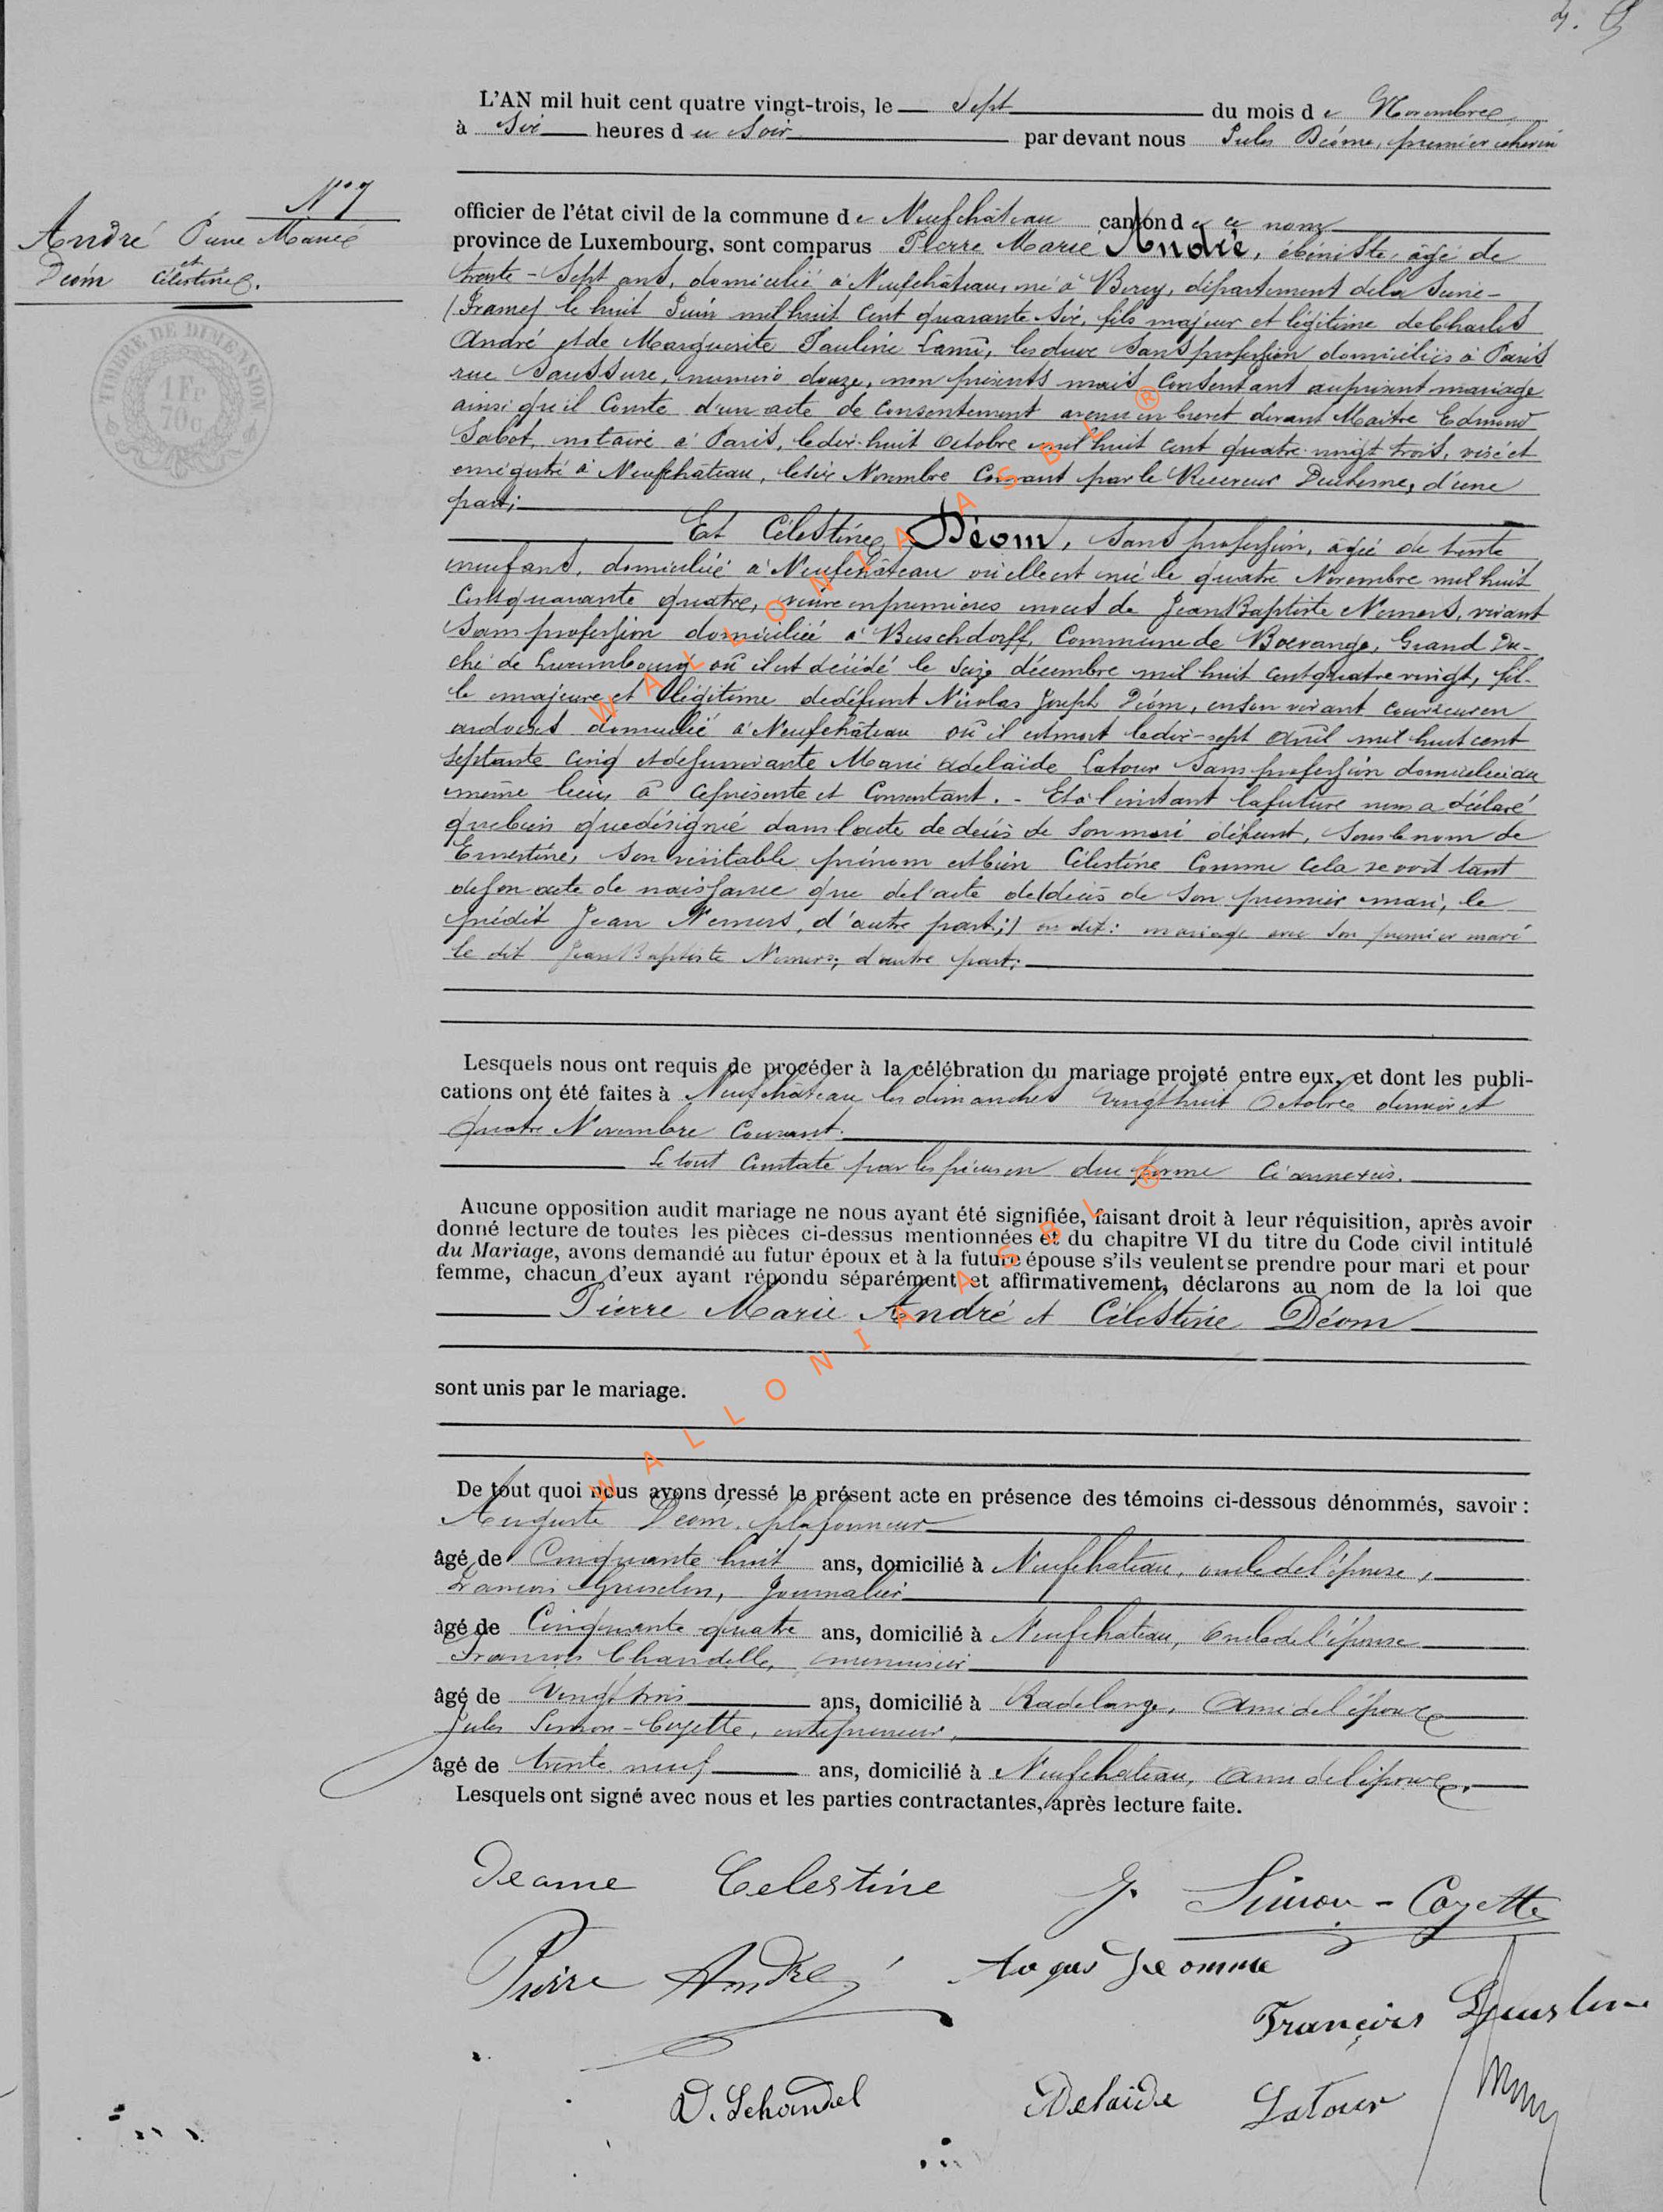 L'AN mil huit cent quatre vingt-trois, le Sept du mois de Novembre
à Six heures du Soir par devant nous Jules Déome, premier échevin
officier de l'état civil de la commune de Neufchâteau canton de ce nom
N° 7
André Pierre Marie
et
Déom Célestine.
province de Luxembourg, sont comparus Pierre Marie André, ébéniste, âgé de
trente-Sept ans, domicilié à Neufchâteau, né à Bercy, département de la Seine
(France) le huit Juin mil huit Cent quarante Six, fils majeur et légitime de Charles
André et de Marguerite Pauline Lamé, les deux Sans profession domiciliés à Paris
rue Saussure, numéro douze, non présents mais Consentant au présent mariage
ainsi qu'il Conste d'un acte de Consentement avenu en brevet devant Maître Edmond
Sabot, notaire à Paris, le dix-huit Octobre mil huit cent quatre-vingt trois, visé et
enregistré à Neufchâteau, le six Novembre Courant par le Receveur Duchesne, d'une
part;
Et Célestine Déom, Sans profession, âgée de trente
neuf ans, domiciliée à Neufchâteau où elle est née le quatre Novembre mil huit
Cent quarante quatre, veuve en premières noces de Jean Baptiste Nemers, vivant
Sans profession domicilié à Buschdorff, Commune de Boevange, Grand Du-
ché de Luxembourg où il est décédé le Seize décembre mil huit cent quatre vingt, fil-
le majeure et légitime de défunt Nicolas Joseph Déom, en son vivant couvreur en
ardoises domicilié à Neufchâteau où il est mort le dix-sept avril mil huit cent
septante cinq et de survivante Marie Adelaïde Latour Sans profession domiciliée au
même lieu, à ce présente et Consentant. - Et à l'instant la future nous a déclaré
que bien que désignée dans l'acte de décès de Son mari défunt, Sous le nom de
Ernestine, Son véritable prénom est bien Célestine Comme Cela se voit tant
de Son acte de naissance que de l'acte de (décès de Son premier mari, le
prédit Jean Nemers, d'autre part;) on dit: mariage avec Son premier mari
le dit Jean Baptiste Nemers; d'autre part;
Lesquels nous ont requis de procéder à la célébration du mariage projeté entre eux, et dont les publi-
cations ont été faites à Neufchâteau les dimanches vingt huit Octobre dernier et
quatre Novembre Courant.
Le tout Constaté par les pièces en due forme Ci annexées.
Aucune opposition audit mariage ne nous ayant été signifiée, faisant droit à leur réquisition, après avoir
donné lecture de toutes les pièces ci-dessus mentionnées et du chapitre VI du titre du Code civil intitulé
du Mariage, avons demandé au futur époux et à la future épouse s'ils veulent se prendre pour mari et pour
femme, chacun d'eux ayant répondu séparément et affirmativement, déclarons au nom de la loi que
Pierre Marie André et Célestine Déom
sont unis par le mariage.
De tout quoi nous avons dressé le présent acte en présence des témoins ci-dessous dénommés, savoir :
Auguste Déom, plafonneur
âgé de Cinquante huit ans, domicilié à Neufchateau, oncle de l'épouse,
François, Journalier
âgé de Cinquante quatre ans, domicilié à Neufchateau, Oncle de l'épouse
François Chandelle, menuisier
âgé de Vingt trois ans, domicilié à Radelange, Ami de l'épouse
Jules Simon-Coyette, entrepreneur,
âgé de trente neuf ans, domicilié à Neufchateau, ami de l'épouse.
Lesquels ont signé avec nous et les parties contractantes, après lecture faite.
Deame Celestine J. Simon-Coyette
Pierre André
François
Schandel Adelaïde Latour
TIMBRE DE DIMENSION
1 Fr
70 c
WALLONIA ASBL ®
WALLONIA ASBL ®